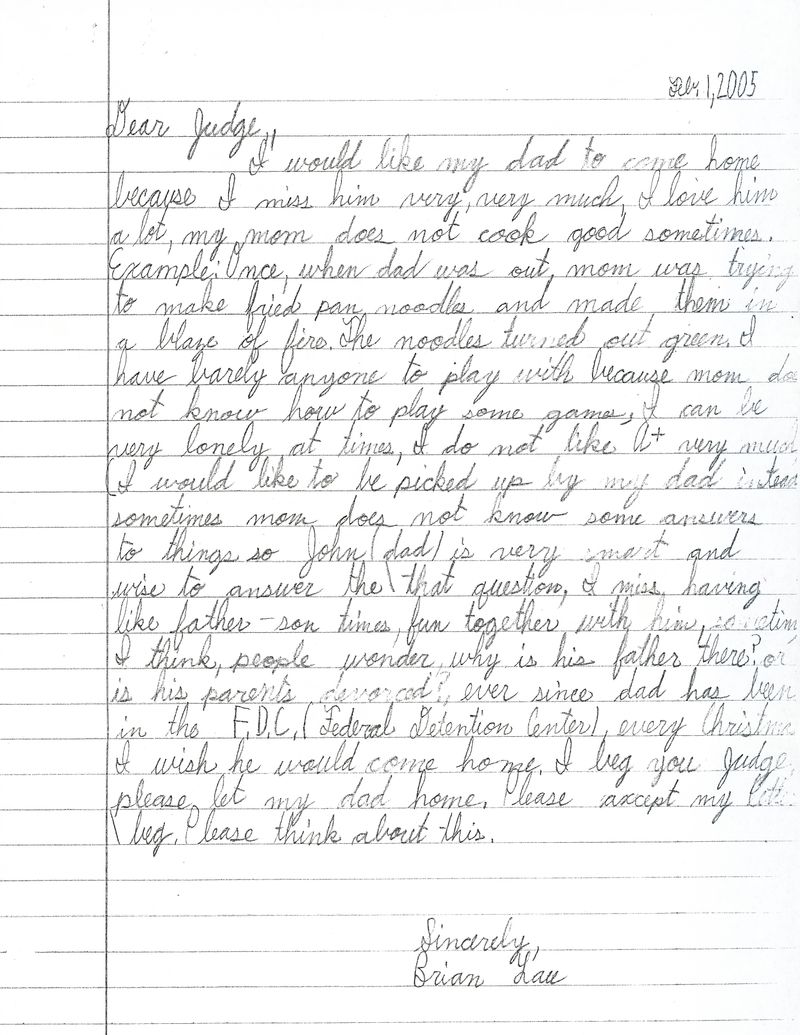 Feb. 1, 2005
Dear Judge,,
I would like my dad to come home
because I miss him very, very much, I love him
a lot, my mom does not cook good sometimes.
Example: Once, when dad was out, mom was trying
to make fried pan noodles and made them in
a blaze of fire. The noodles turned out green. I
have barely anyone to play with because mom do
not know how to play some games, I can be
very lonely at times, I do not like A+ very much
(I would like to be picked up by my dad instead
sometimes mom does not know some answers
to things so John (dad) is very smart and
wise to answer the \ that question, I miss having
like father-son times, fun together with him, sometim
I think, people wonder why is his father there? or
is his parents devorced?, ever since dad has been
in the F.D.C, (Federal Detention Center), every Christma
I wish he would come home. I beg you Judge,
please let my dad home. Please axcept my lette
\ beg. Please think about this.
Sincerely,
Brian Lau